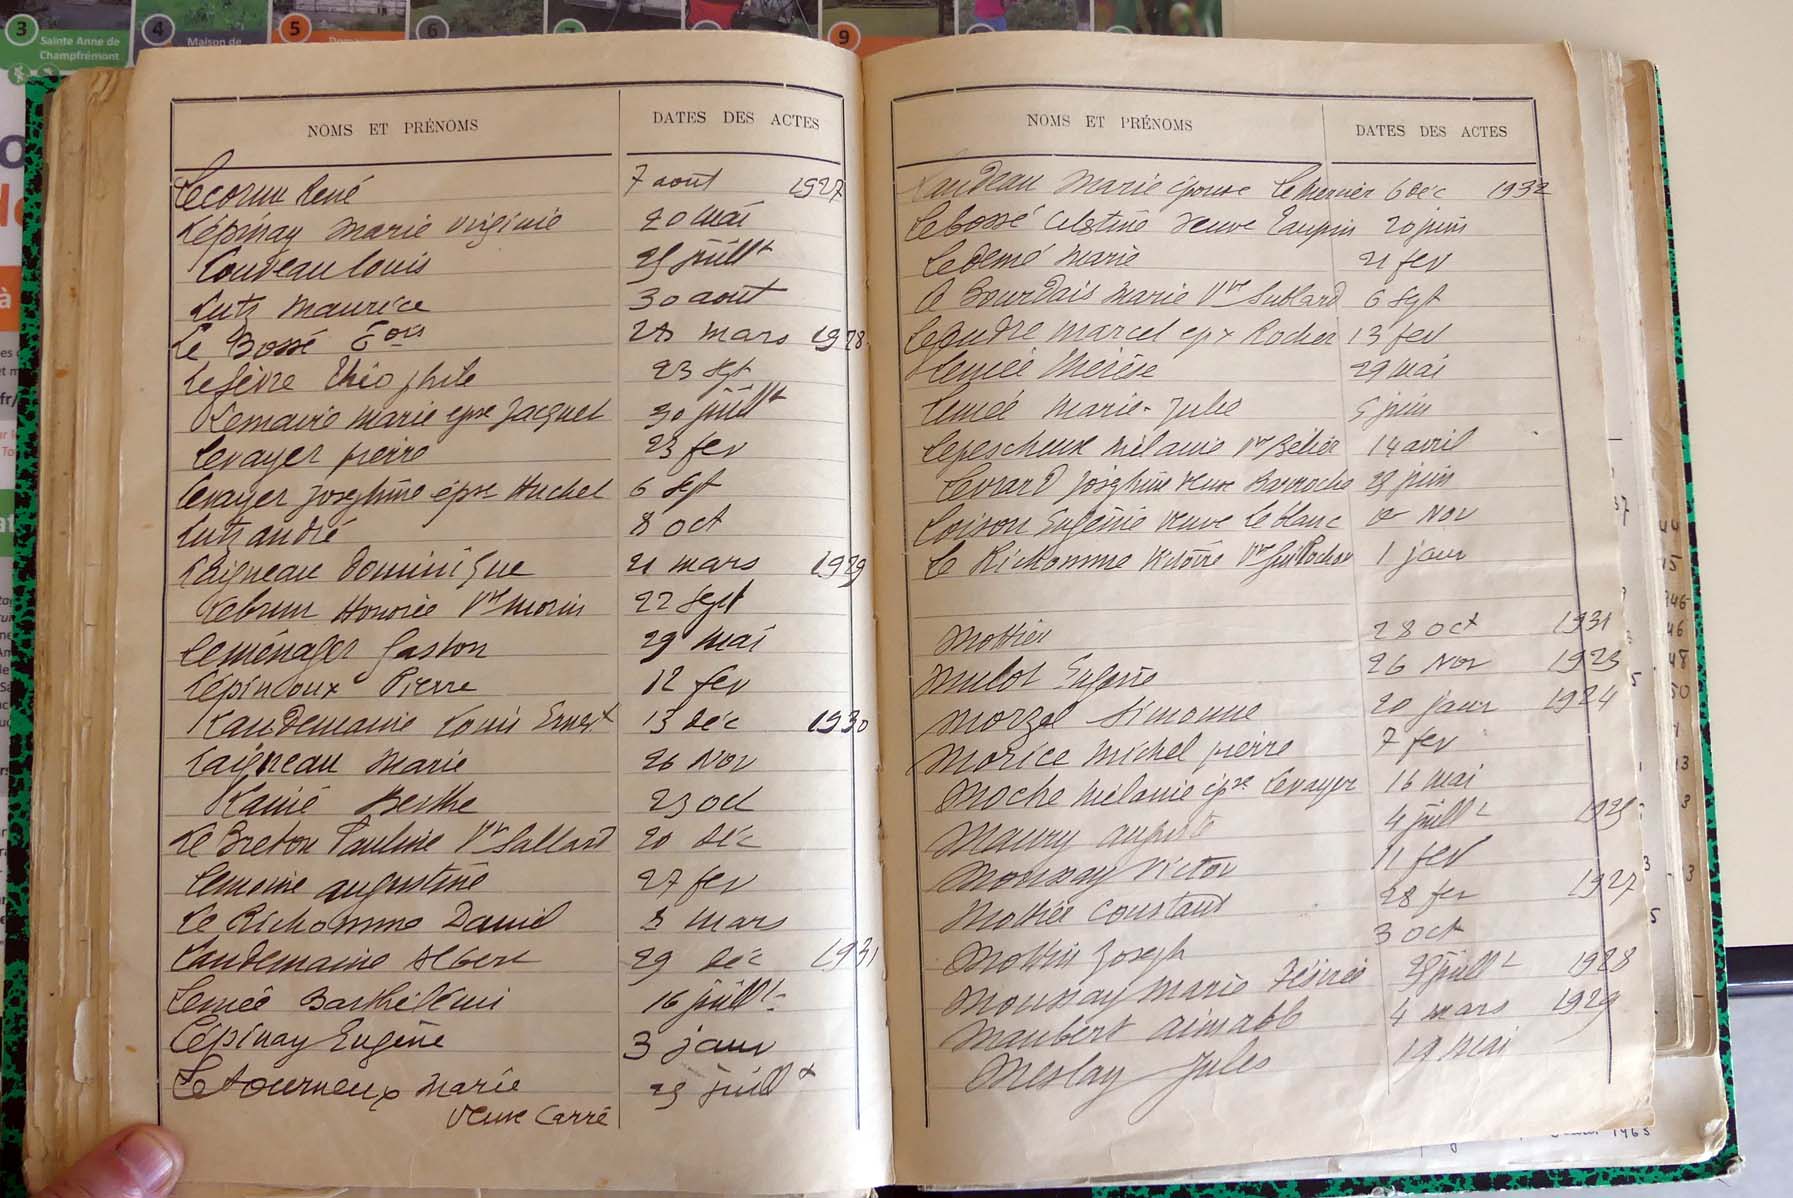 3 Sainte Anne de
Champfrémont
4 Maison de
5
6
9
NOMS ET PRÉNOMS DATES DES ACTES
Lecornu René 7 aout 1927
Lépinay Marie Virginie 20 Mai
Loudeau Louis 25 juillt
Lutz Maurice 30 aout
Le Bossé Fois 28 mars 1928
Lefèvre Théophile 23 Sept
Lemaire Marie epse Jacquet 30 juillt
Levayer pierre 23 fev
Levayer Josephine épse Huchet 6 Sept
Lutz andré 8 oct
Laigneau Dominique 21 mars 1929
Lebrun Honorée Vve Morin 22 Sept
Leménager Gaston 29 Mai
Lépinoux Pierre 12 fev
Landemaine Louis Ernest 13 déc 1930
Laigneau Marie 26 Nov
Lainé Berthe 23 oct
Le Breton Pauline Vve Sallard 20 déc
Lemoine augustine 27 fev
Le Richomme Daniel 8 mars
Landemaine Albert 29 déc 1931
Lemée Barthélemi 16 juillt
Lépinay Eugène 3 janv
Letourneux Marie 23 juillt
Veuve Carré
NOMS ET PRÉNOMS DATES DES ACTES
Landeau Marie épouse Lemernier 6 Déc 1932
Lebossé Célestine Veuve Taupin 20 juin
Ledemé Marie 21 fev
Le Bourdais Marie Vve Sablard 6 Sept
Leaudre Marcel epx Rocher 13 fev
Lemée Thérèse 29 Mai
Lemée Marie-Julie 5 juin
Lepescheux Mélanie Vve Bélier 14 avril
Levrard Joséphine Veuve Barroche 23 juin
Loison Eugénie Veuve Leblanc Nov
Le Richomme Victoire Vve 1 janv
Mottier 28 oct 1931
Mulot Eugénie 26 Nov 1923
Morzel Simonne 20 janv 1924
Morice Michel pierre 7 fev
Moche Mélanie épse Levayer 16 mai
Maury auguste 4 juillt 1925
Mounay Victor 11 fev
Mottier Constant 28 fev 1927
Mottin Joseph 3 oct
Mounay Marie Désirée 28 juillt 1928
Maubert aimable 4 mars 1929
Meslay Jules 19 Mai
1963